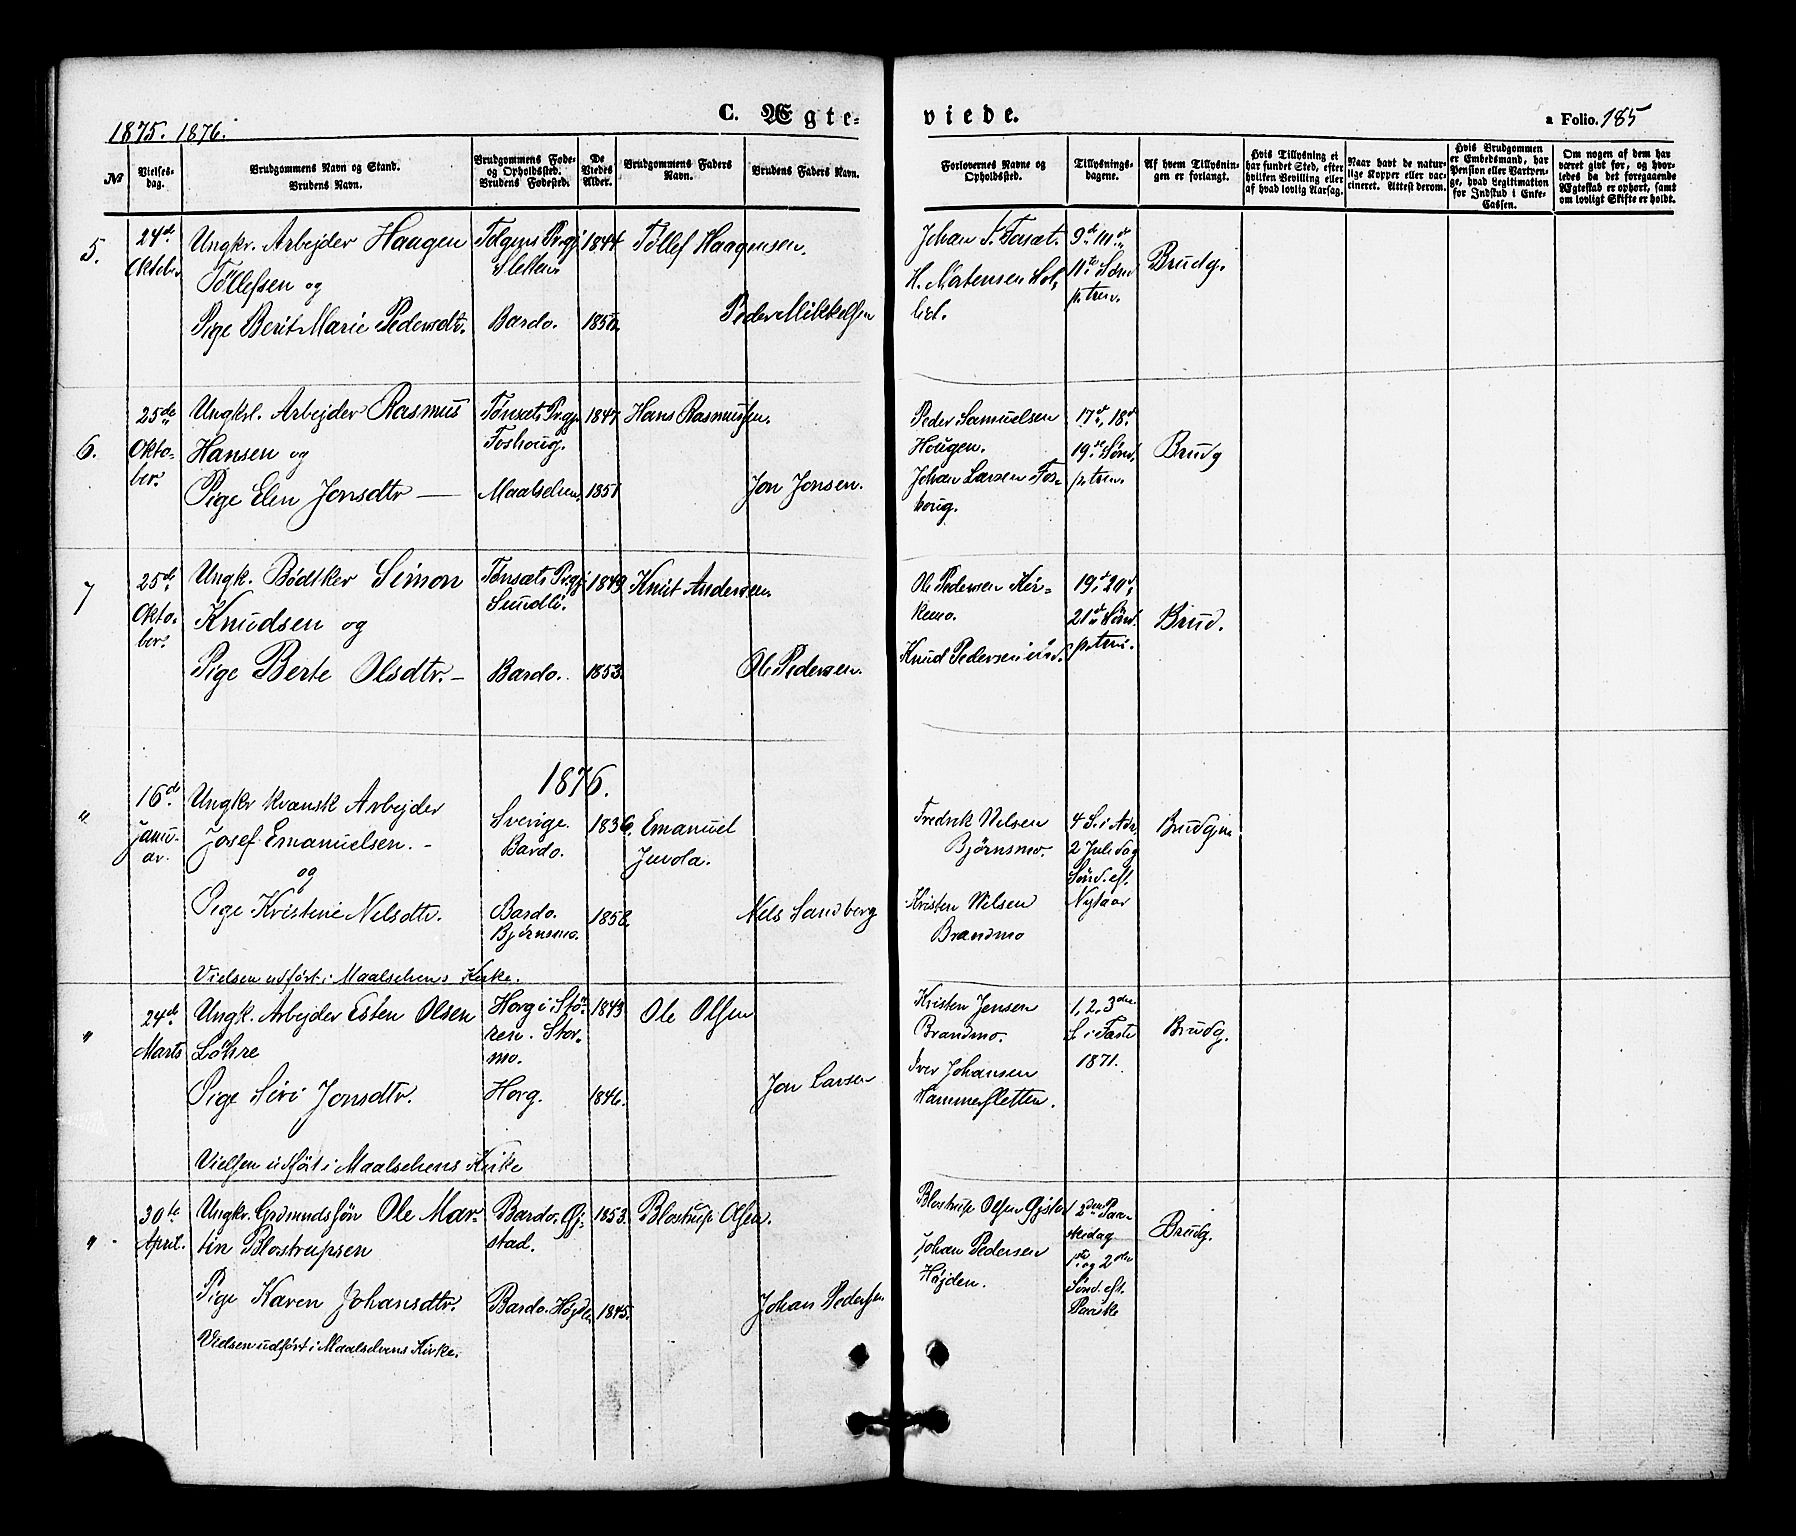 1875. 1876.
C. Ægte-
viede.
a Folio. 185
No
Vielses-
dag.
Brudgommens Navn og Stand.
Brudens Navn.
Brudgommens Føde-
og Opholdssted.
Brudens Fødested.
De
Viedes
Alder.
Brudgommens Faders
Navn.
Brudens Faders Navn.
Forlovernes Navne og
Opholdssted.
Tillysnings-
dagene.
Af hvem Tillysnin-
gen er forlangt.
Hvis Tillysning ei
har fundet Sted, efter
hvilken Bevilling eller
af hvad lovlig Aarsag.
Naar havt de natur-
lige Kopper eller vac-
cineret. Attest derom.
Hvis Brudgommen
er Embedsmand, har
Pension eller Vartpen-
ge, hvad Legitimation
for Indskud i Enke-
Cassen.
Om nogen af dem har
været gift før, og hvor-
ledes da det foregaaende
Ægteskab er ophørt, samt
om lovligt Skifte er holdt.
5.
24de
Oktober
Ungkr. Arbejder Haagen
Tøllefsen og
Pige Berit Marie Pedersdtr.
Tolgens Prgj.
Sletten.
Bardo.
1844
1850.
Tøllef Haagensen.
Peder Mikkelsen
Johan S. Fosæt.
H. Mortensen
9de 10de
11te Sønd.
p. tren.
Brudg.
6.
25de
Okto-
ber.
Ungkrl. Arbejder Rasmus
Hansen og
Pige Elen Jonsdtr —
Tønsæts Prgj.
Foshoug.
Maalselven.
1847
1851
Hans Rasmussen.
Jon Jonsen.
Peder Samuelsen
Hougen.
Johan Larsen Fos-
houg.
17de, 18de
19de Sønd.
p. tren.
Brudg
7
25de
Okto-
ber.
Ungk. Bødtker Simon
Knudsen og
Pige Berte Olsdtr. —
Tønsæts Prgj.
Sundli.
Bardo.
1849
1853.
Knut Andersen.
Ole Pedersen.
Ole Pedersen Kir-
kemo.
Knud Pedersen ibid.
19de 20de
21de Sønd.
p. tri.
Brud.
1876.
"
16de
Janu-
ar.
Ungkr kvænsk Arbejder
Josef Emanuelsen. -
og
Pige Kristine Nelsdtr.
Vielsen udført i Maalselvens Kirke.
Sverige.
Bardo.
Bardo.
Bjørnsmo.
1836.
1858.
Emanuel
Juvola.
Nels Sandberg
Fredrik Nelsen
Bjørnsmo.
Kristen Nelsen
Brandmo
4 S. i Adv.
2 Juledag
Sønd. eft.
Nytaar
Brudgm
"
24de
Marts
Ungk. Arbejder Esten Olsen
Løhre
Pige Siri Jonsdtr.
Vielsen udført i Maalselvens Kirke
Horg i Stø-
ren. Stor-
mo.
Horg.
1843
1846.
Ole Olsen
Jon Larsen
Kristen Jensen
Brandmo.
Iver Johansen
Hammersletten.
1, 2, 3die
S. i Faste
1871.
Brudg.
"
30te
April.
Ungkr. Grdmandssøn Ole Mar-
tin Blostrupsen
Pige Karen Johansdtr.
Vielsen udført i Maalselvens Kirke.
Bardo. Gj-
stad.
Bardo. Højde
1853.
1845.
Blostrup Olsen.
Johan Pedersen
Blostrup Olsen
Johan Pedersen
Højden.
2den Paa-
skedag
1ste og 2den
Sønd. eft.
Paaske
Brudg.